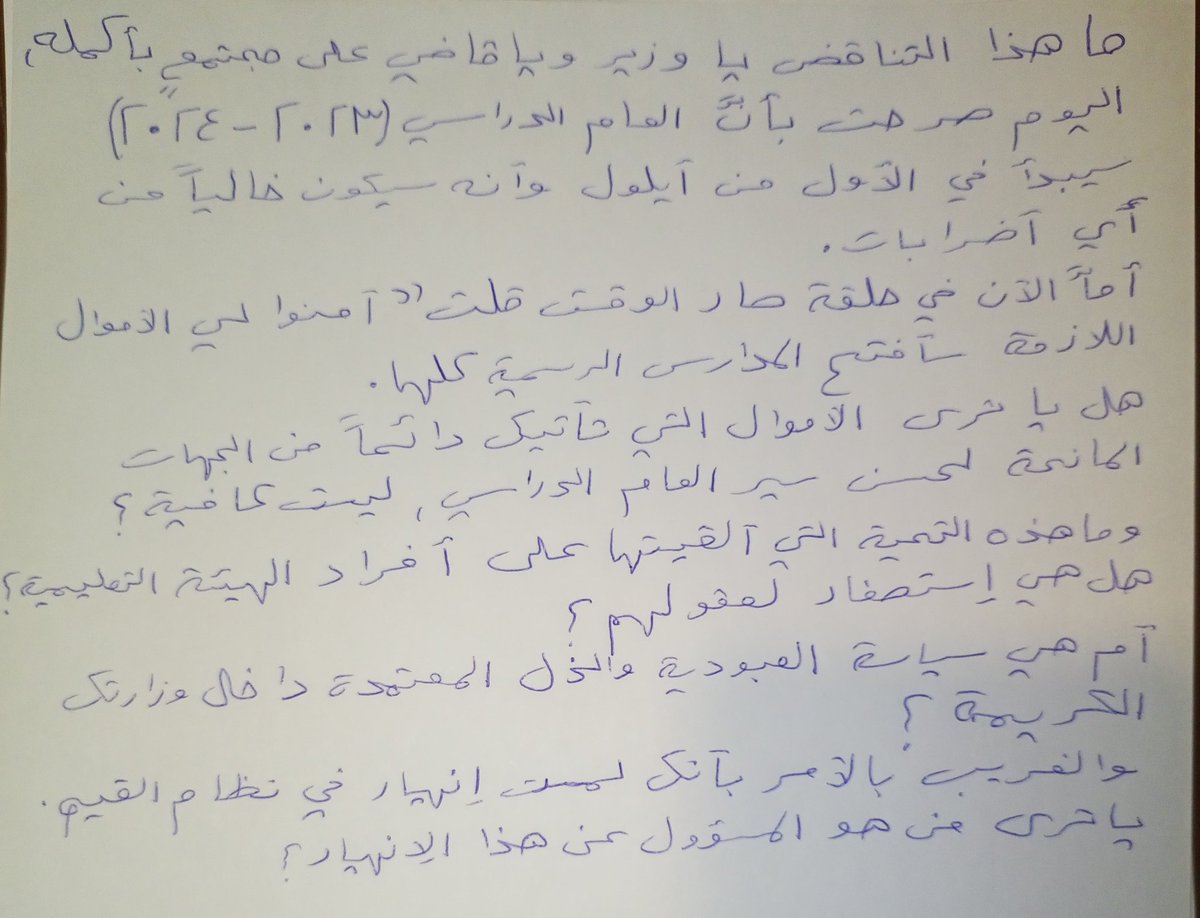 ما هذا التناقض يا وزير ويا قاضي على مجتمعٍ بأكمله،
اليوم صرحت بأنَّ العام الدراسي (٢٠٢٣ - ٢٠٢٤)
سيبدأ في الأول من أيلول وأنه سيكون خالياً من
أي أضرابات.
أمَّا الآن في حلقة صار الوقت قلت "أمنوا لي الأموال
اللازمة سأفتح المدارس الرسمية كلها.
هل يا ترى الأموال التي تأتيك دائماً من الجهات
المانحة لحسن سير العام الدراسي، ليست كافية؟
وما هذه التي ألقيتها على أفراد الهيئة التعليمية؟
هل هي إستصغار لعقولهم؟
أم هي سياسة العبودية والذل المعتمدة داخل وزارتك
الكريمة؟
والغريب بالأمر بأنك لمست إنهيار في نظام القيم.
يا ترى من هو المسؤول عن هذا الإنهيار؟